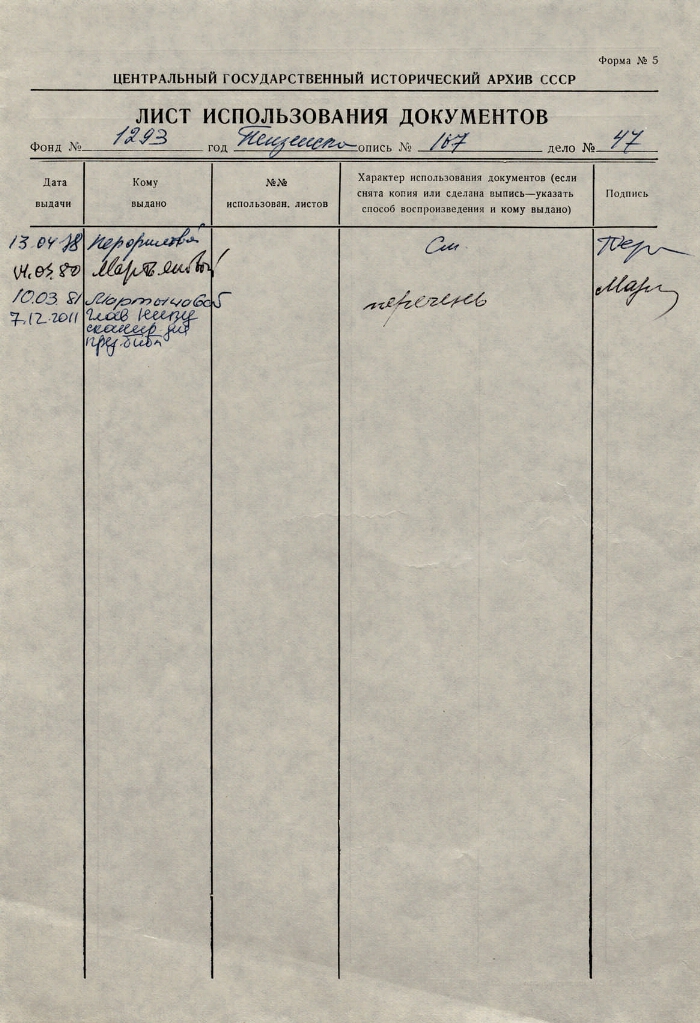 Форма № 5
ЦЕНТРАЛЬНЫЙ ГОСУДАРСТВЕННЫЙ ИСТОРИЧЕСКИЙ АРХИВ СССР
ЛИСТ ИСПОЛЬЗОВАНИЯ ДОКУМЕНТОВ
Фонд № 1293 год опись № 167 дело № 47
Дата выдачи
Кому выдано
№№ использован. листов
Характер использования документов (если
снята копия или сделана выпись—указать
способ воспроизведения и кому выдано)
Подпись
13.04 78 См.
80
10.03 81 Мартыновой перечень
7.12.2011
сканир для
през. библ